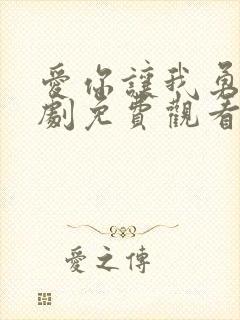 愛你讓我勇
劇免費觀看
愛之傳